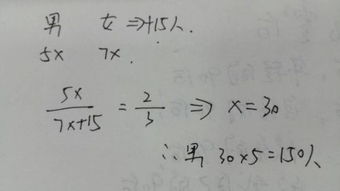 男 女 ⇒+15人.
5x 7x.
5x/7x+15 = 2/3 ⇒ x=30
∴男 30×5=150人